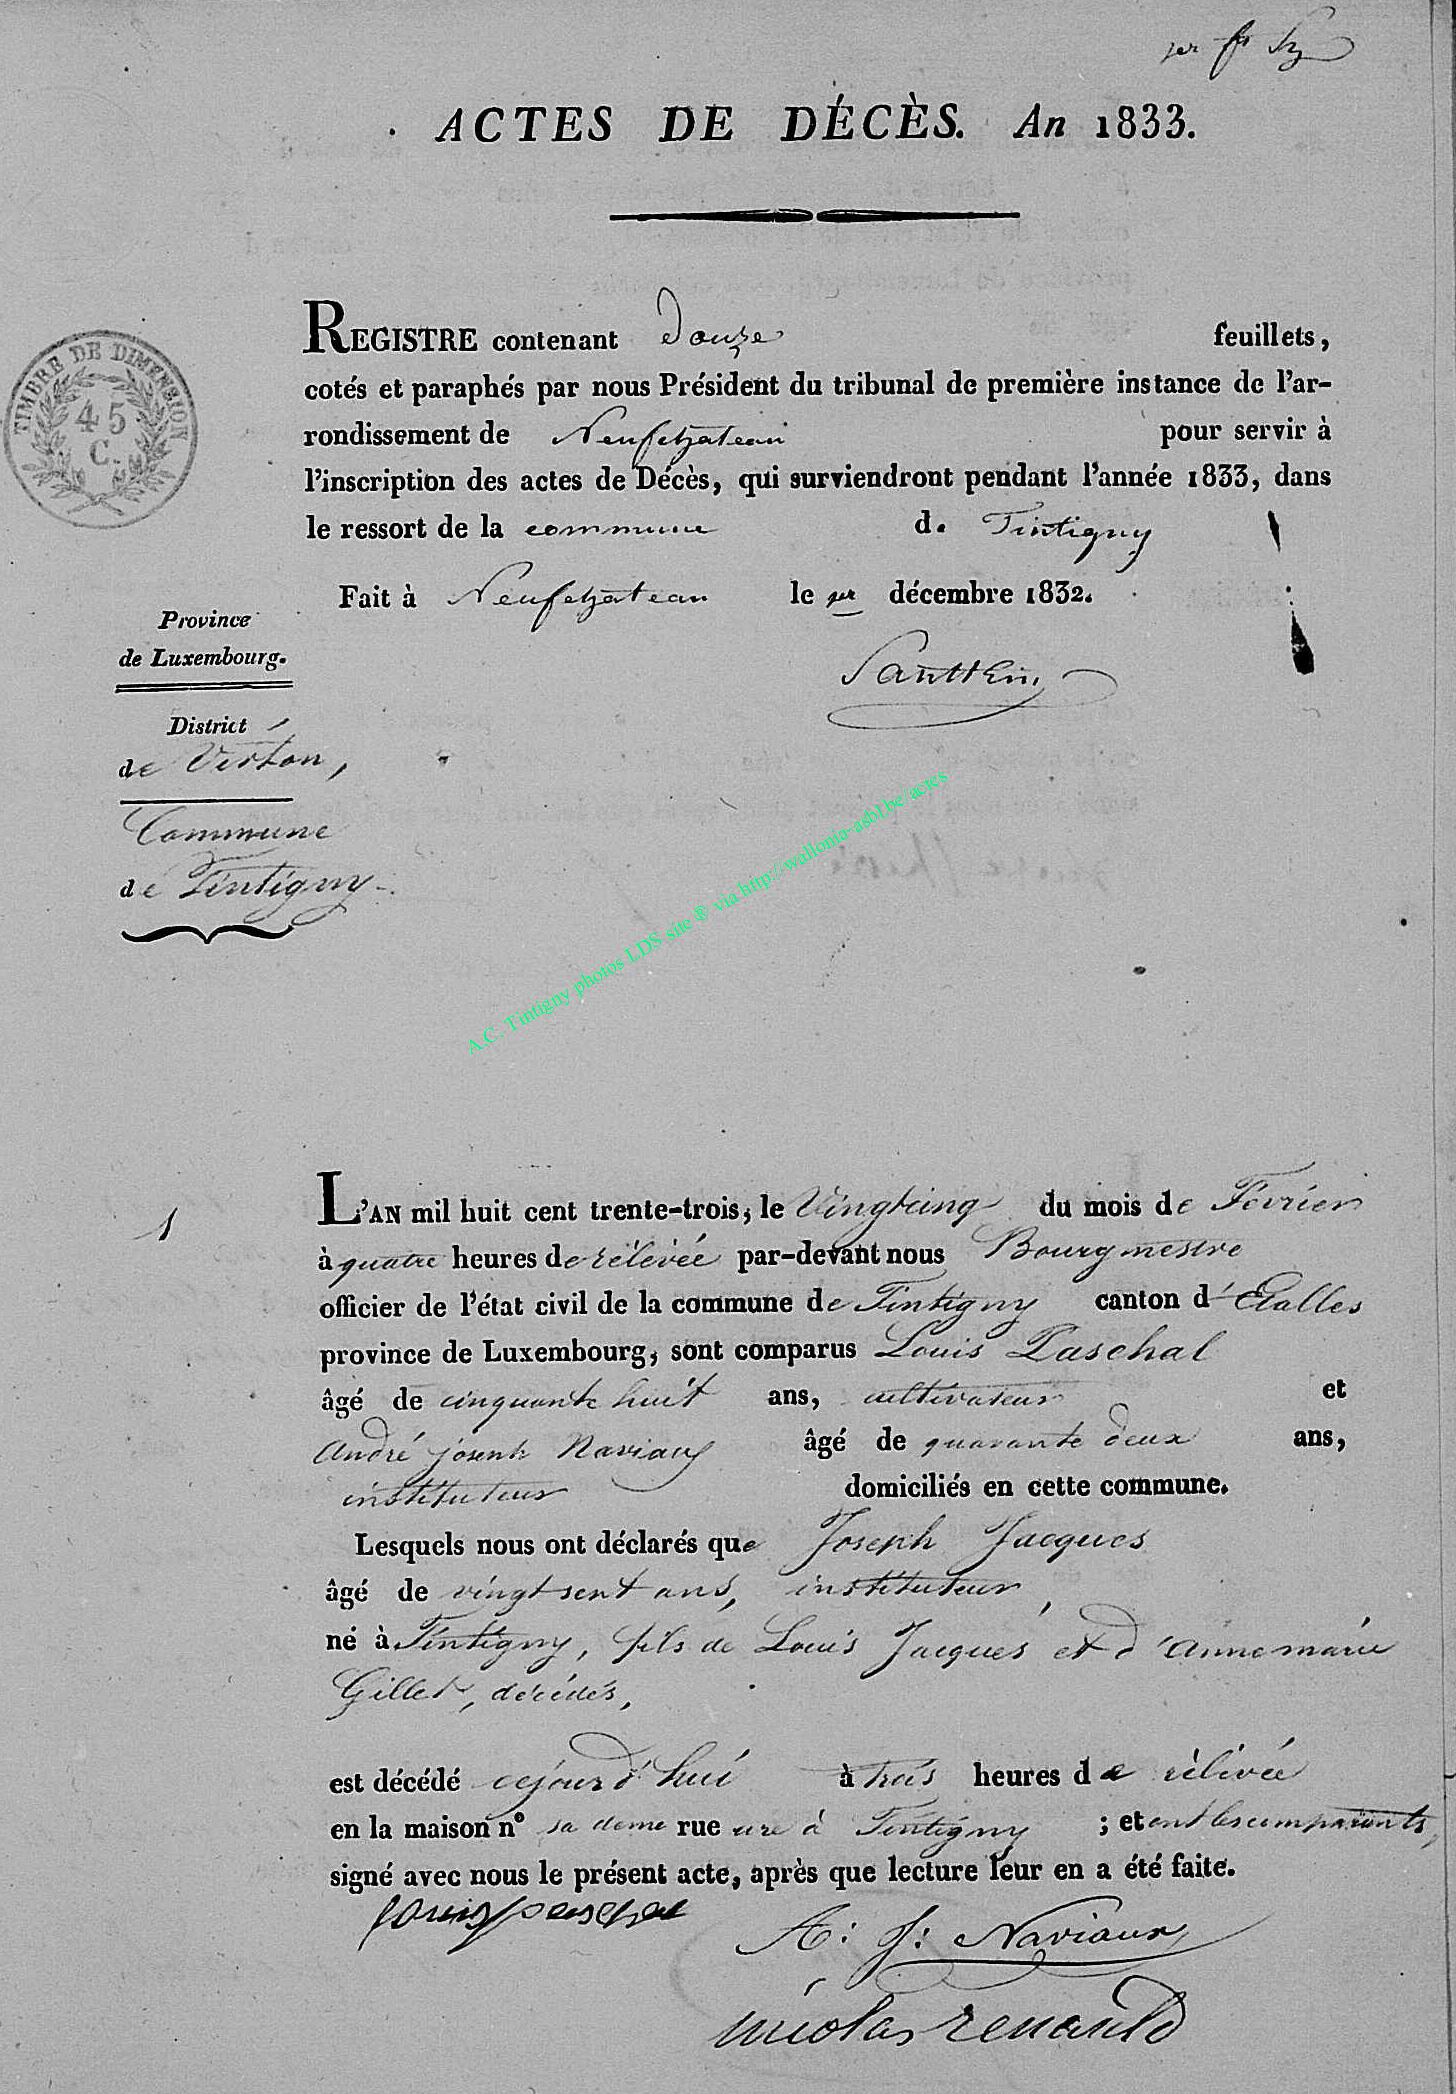 1er ft
ACTES DE DÉCÈS. An 1833.
REGISTRE contenant douze feuillets,
cotés et paraphés par nous Président du tribunal de première instance de l'ar-
rondissement de Neufchateau pour servir à
l'inscription des actes de Décès, qui surviendront pendant l'année 1833, dans
le ressort de la commune de Tintigny
Fait à Neufchateau le 1er décembre 1832.
TIMBRE DE DIMENSION
45
C.
Province
de Luxembourg.
District
de Virton,
Commune
de Tintigny
A.C. Tintigny photos LDS site ® via http://wallonia-asbl.be/actes
1
L'AN mil huit cent trente-trois, le Vingtcinq du mois de Février
à quatre heures de rélévée par-devant nous Bourgmestre
officier de l'état civil de la commune de Tintigny canton d'Etalles
province de Luxembourg, sont comparus Louis Paschal
âgé de cinquante huit ans, cultivateur et
André joseph Naviaux âgé de quarante deux ans,
instituteur domiciliés en cette commune.
Lesquels nous ont déclarés que Joseph Jacques
âgé de vingt sept ans, instituteur,
né à Tintigny, fils de Louis Jacques et d'Anne marie
Gillet, décédés,
est décédé cejourd'hui à trois heures de rélévée
en la maison n° sa deme rue ure à Tintigny ; et ont les comparants,
signé avec nous le présent acte, après que lecture leur en a été faite.
Louis paschal
A: J: Naviaux
nicolas renauld